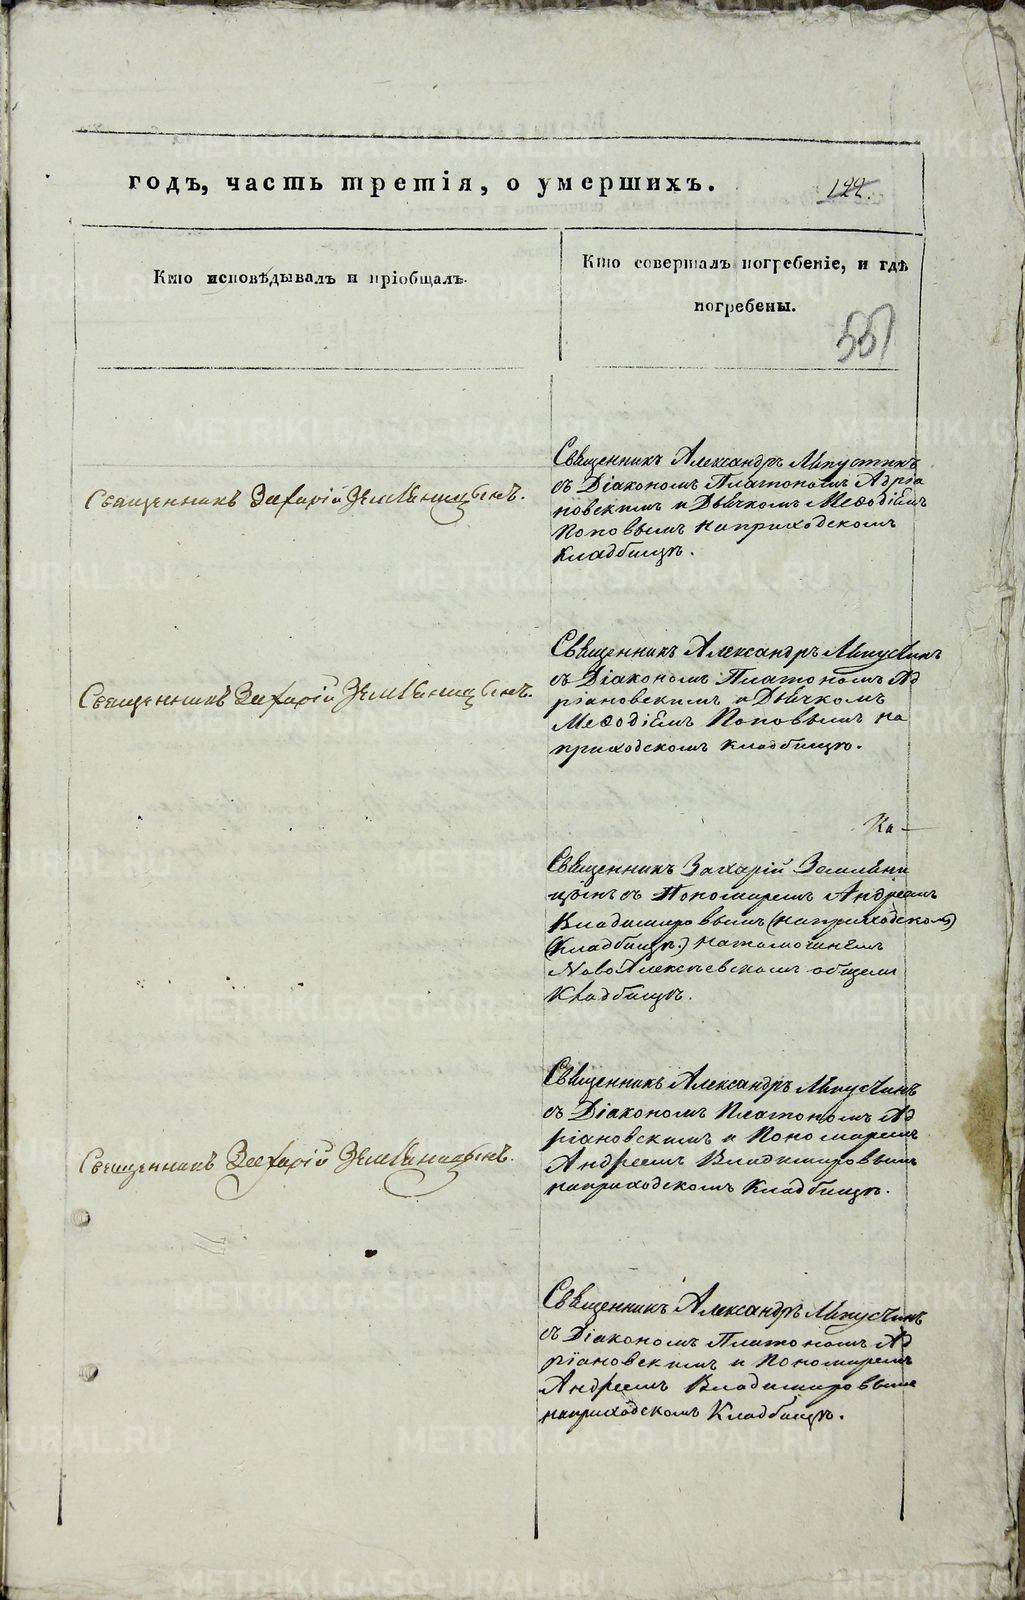 годъ, часть третія, о умершихъ.
122.
Кто исповѣдывалъ и пріобщалъ.
Кто совершалъ погребеніе, и гдѣ
погребены.
557
Священникъ Захарій Земляницынъ.
Священникъ Александръ Лѣпустинъ
съ Діакономъ Платономъ Адріа
новскимъ и Дьячкомъ Меѳодіемъ
Поповымъ на приходскомъ
кладбищѣ.
Священникъ Захарій Земляницынъ.
Священникъ Александръ Лѣпустинъ
съ Діакономъ Платономъ Ад
ріановскимъ и Дьячкомъ
Меѳодіемъ Поповымъ на
приходскомъ кладбищѣ.
Ка —
Священникъ Захарій Земляни
цынъ съ Пономаремъ Андреемъ
Владимировымъ (на приходскомъ)
(Кладбищѣ.) на тамошнемъ
НовоАлексѣевскомъ общемъ
Кладбищѣ.
Священникъ Захарій Земляницынъ.
Священникъ Александръ Лѣпустинъ
съ Діакономъ Платономъ Ад
ріановскимъ и Пономаремъ
Андреемъ Владимировымъ
на приходскомъ Кладбищѣ.
Священникъ Александръ Лѣпустинъ
съ Діакономъ Платономъ Ад
ріановскимъ и Пономаремъ
Андреемъ Владимировымъ
на приходскомъ Кладбищѣ.
METRIKI.GASO-URAL.RU